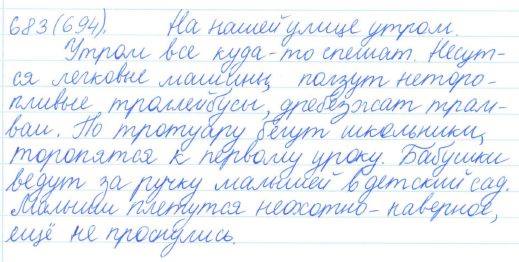 683(694). На нашей улице утром.
Утром все куда-то спешат. Несут-
ся легковые машины, ползут неторо-
пливые троллейбусы, дребезжат трам-
ваи. По тротуару бегут школьники,
торопятся к первому уроку. Бабушки
ведут за ручку малышей в детский сад.
Малыши плетутся неохотно - наверное,
ещё не проснулись.